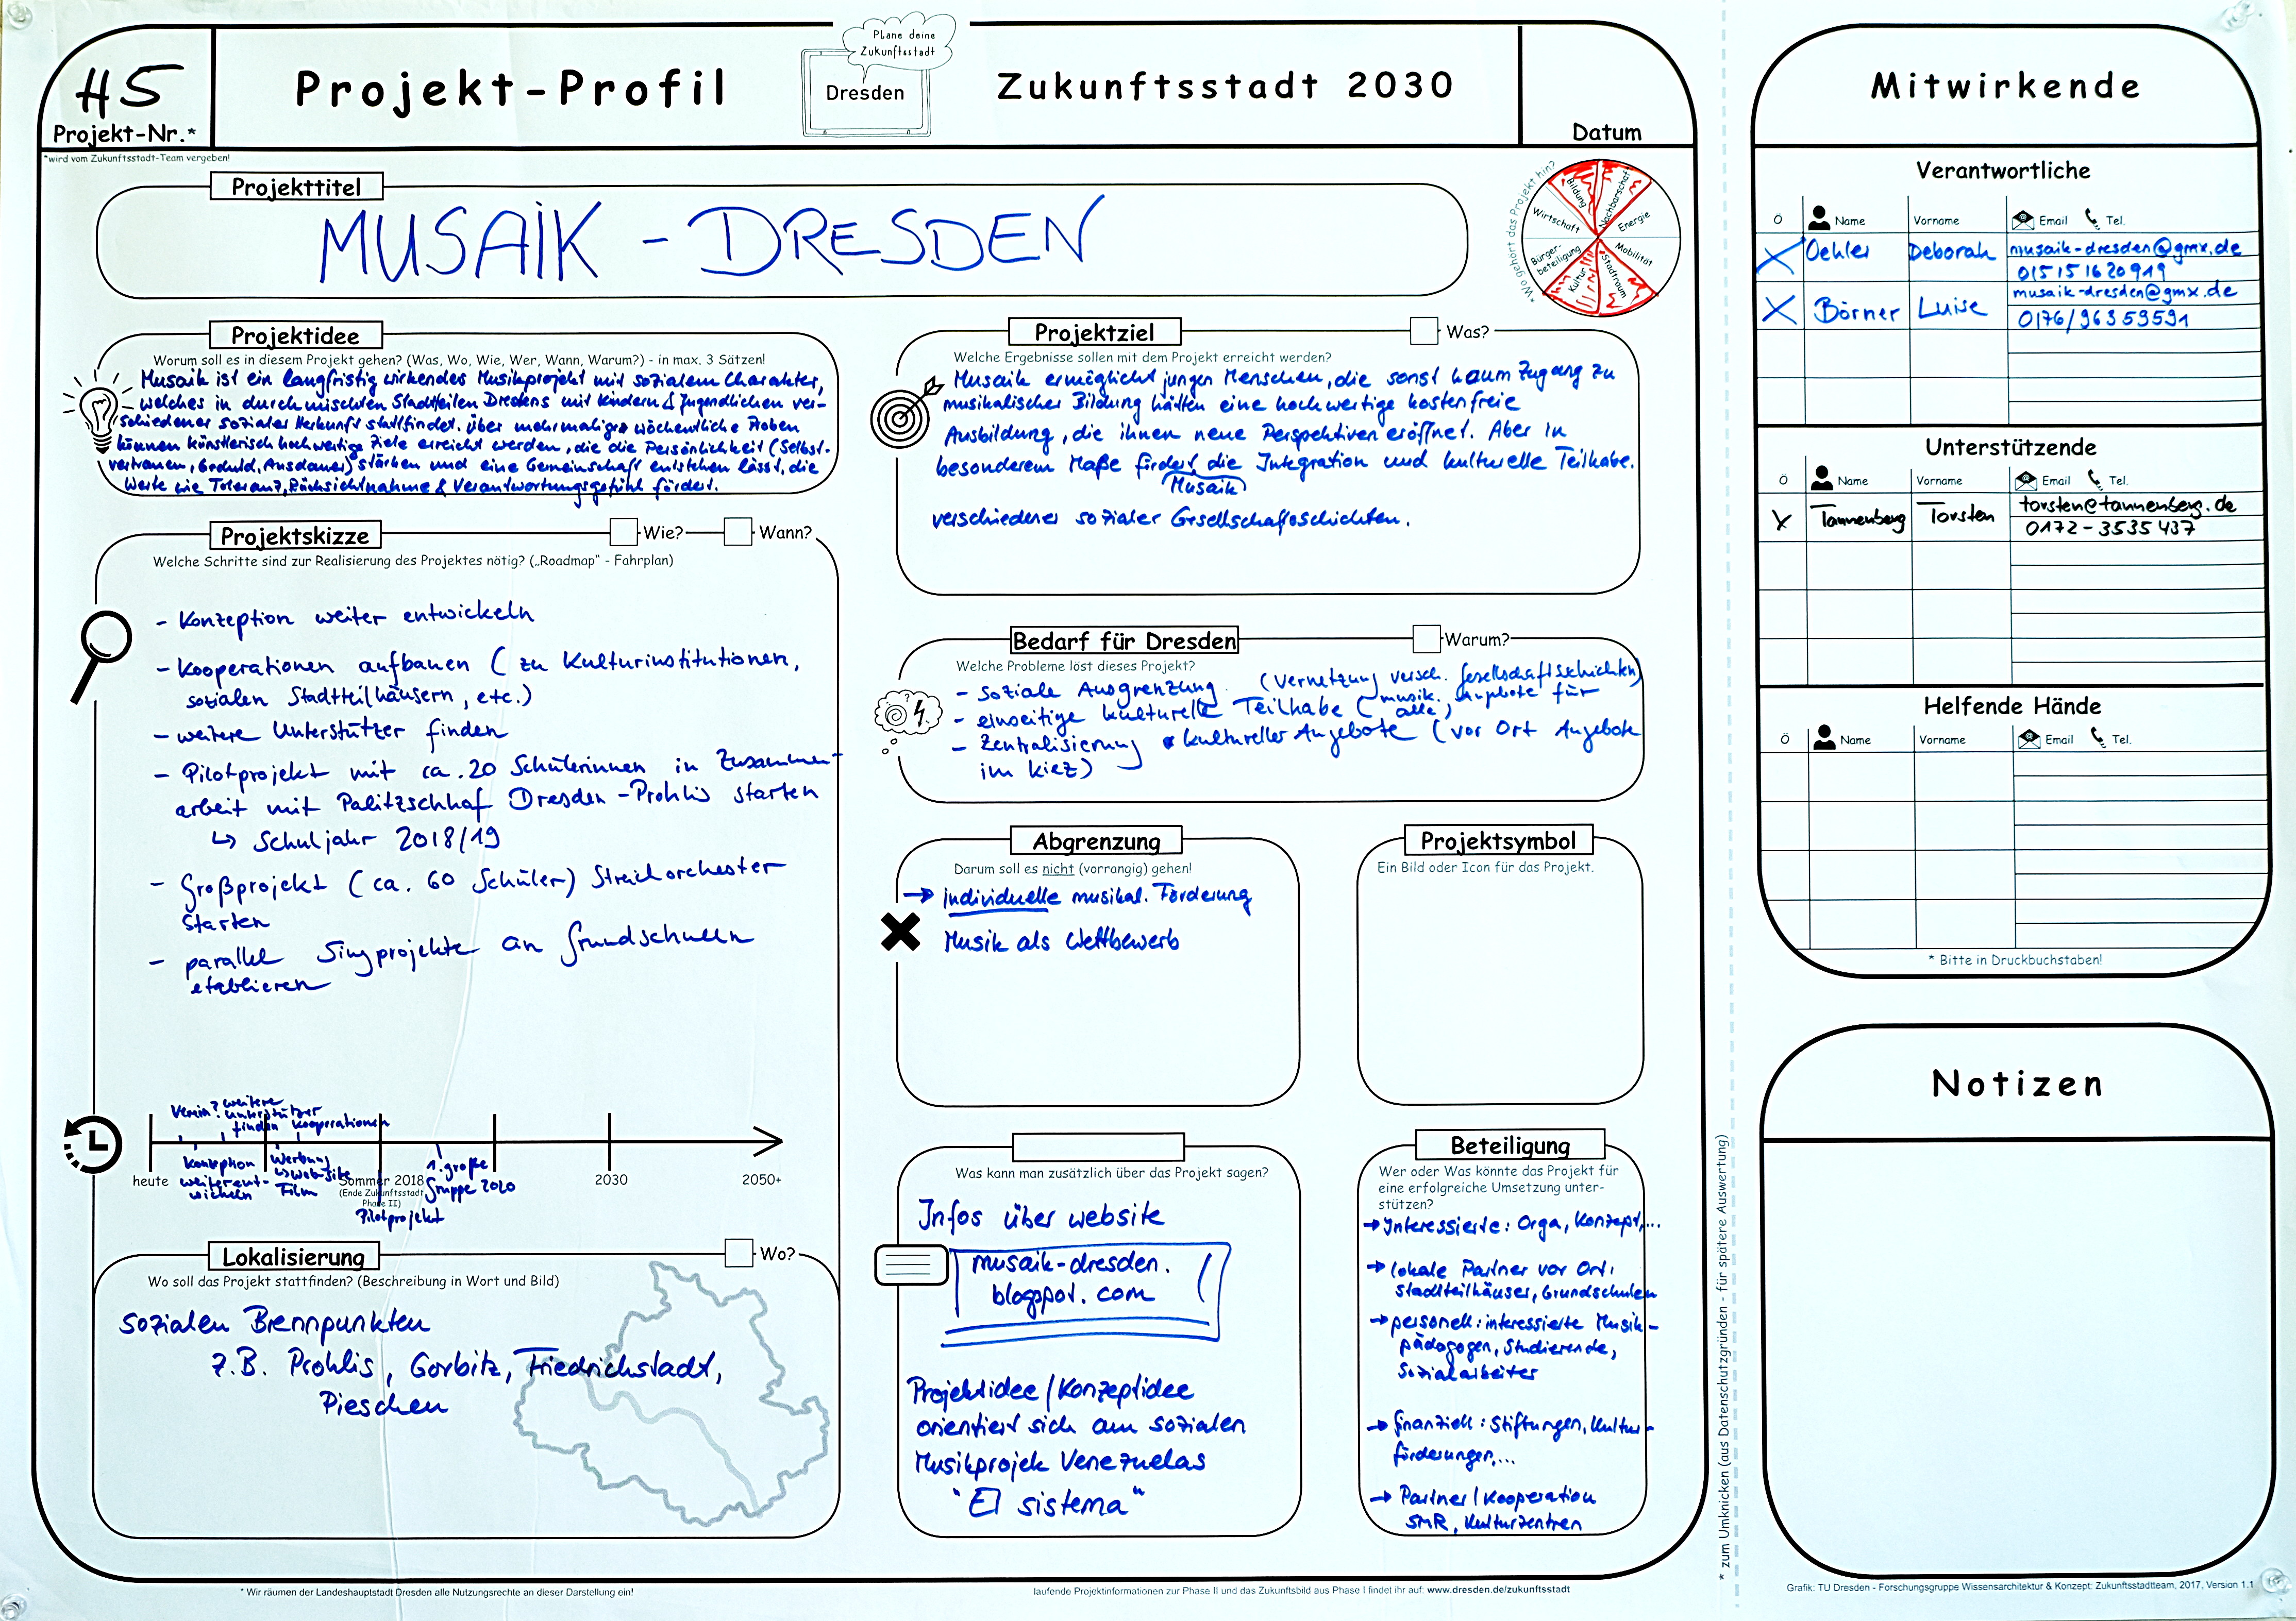 H5
Projekt-Nr.*
*wird vom Zukunftsstadt-Team vergeben!
Projekt-Profil
Plane deine
Zukunftsstadt
Dresden
Zukunftsstadt 2030
Datum
Projekttitel
MUSAIK - DRESDEN
*Wo gehört das Projekt hin?
Bildung
Nachbarschaft
Energie
Mobilität
Stadtraum
Kultur
Bürger-
beteiligung
Wirtschaft
Projektidee
Worum soll es in diesem Projekt gehen? (Was, Wo, Wie, Wer, Wann, Warum?) - in max. 3 Sätzen!
Musaik ist ein langfristig wirkendes Musikprojekt mit sozialem Charakter,
welches in durchmischten Stadtteilen Dresdens mit Kindern & Jugendlichen ver-
schiedener sozialer Herkunft stattfindet. Über mehrmalige wöchentliche Proben
können künstlerisch hochwertige Ziele erreicht werden, die die Persönlichkeit (Selbst-
vertrauen, Geduld, Ausdauer) stärken und eine Gemeinschaft entstehen lässt, die
Werte wie Toleranz, Rücksichtnahme & Verantwortungsgefühl fördert.
Projektskizze
Wie?
Wann?
Welche Schritte sind zur Realisierung des Projektes nötig? („Roadmap" - Fahrplan)
- Konzeption weiter entwickeln
- Kooperationen aufbauen (zu Kulturinstitutionen,
sozialen Stadtteilhäusern, etc.)
- weitere Unterstützer finden
- Pilotprojekt mit ca. 20 Schülerinnen in Zusammen-
arbeit mit Palitzschhof Dresden-Prohlis starten
↳ Schuljahr 2018/19
- Großprojekt (ca. 60 Schüler) Streichorchester
starten
- parallel Singprojekte an Grundschulen
etablieren
Verein? weitere
Unterstützer
finden Kooperationen
Konzeption
weiterent-
wickeln
Werbung
↳ Web-site
Film
Pilotprojekt
1. große
Gruppe 2020
heute
Sommer 2018
(Ende Zukunftsstadt
Phase II)
2030
2050+
Lokalisierung
Wo?
Wo soll das Projekt stattfinden? (Beschreibung in Wort und Bild)
sozialen Brennpunkten
z.B. Prohlis, Gorbitz, Friedrichstadt,
Pieschen
Projektziel
Was?
Welche Ergebnisse sollen mit dem Projekt erreicht werden?
Musaik ermöglicht jungen Menschen, die sonst kaum Zugang zu
musikalischer Bildung hätten eine hochwertige kostenfreie
Ausbildung, die ihnen neue Perspektiven eröffnet. Aber in
besonderem Maße fördert die Integration und kulturelle Teilhabe.
Musaik
verschiedener sozialer Gesellschaftsschichten.
Bedarf für Dresden
Warum?
Welche Probleme löst dieses Projekt?
- soziale Ausgrenzung (Vernetzung versch. Gesellschaftsschichten)
- einseitige kulturelle Teilhabe (musik. Angebote für
alle)
- Zentralisierung kultureller Angebote (vor Ort Angebote
im Kiez)
Abgrenzung
Darum soll es nicht (vorrangig) gehen!
→ individuelle musikal. Förderung
Musik als Wettbewerb
Projektsymbol
Ein Bild oder Icon für das Projekt.
Was kann man zusätzlich über das Projekt sagen?
Infos über website
musaik-dresden.
blogspot.com
Projektidee/Konzeptidee
orientiert sich am sozialen
Musikprojek Venezuelas
"El sistema"
Beteiligung
Wer oder Was könnte das Projekt für
eine erfolgreiche Umsetzung unter-
stützen?
→ Interessierte: Orga, Konzept,...
→ lokale Partner vor Ort:
Stadtteilhäuser, Grundschulen
→ personell: interessierte Musik-
pädagogen, Studierende,
Sozialarbeiter
→ finanziell: Stiftungen, Kultur-
förderungen,...
→ Partner/Kooperation
SMR, Kulturzentren
* Wir räumen der Landeshauptstadt Dresden alle Nutzungsrechte an dieser Darstellung ein!
laufende Projektinformationen zur Phase II und das Zukunftsbild aus Phase I findet ihr auf: www.dresden.de/zukunftsstadt
* zum Umknicken (aus Datenschutzgründen - für spätere Auswertung)
Mitwirkende
Verantwortliche
Ö Name Vorname Email Tel.
X Oehler Deborah musaik-dresden@gmx.de
01515 1620919
X Börner Luise musaik-dresden@gmx.de
0176/96353591
Unterstützende
Ö Name Vorname Email Tel.
X Tannenberg Torsten torsten@tannenberg.de
0172-3535437
Helfende Hände
Ö Name Vorname Email Tel.
* Bitte in Druckbuchstaben!
Notizen
Grafik: TU Dresden - Forschungsgruppe Wissensarchitektur & Konzept: Zukunftsstadtteam, 2017, Version 1.1